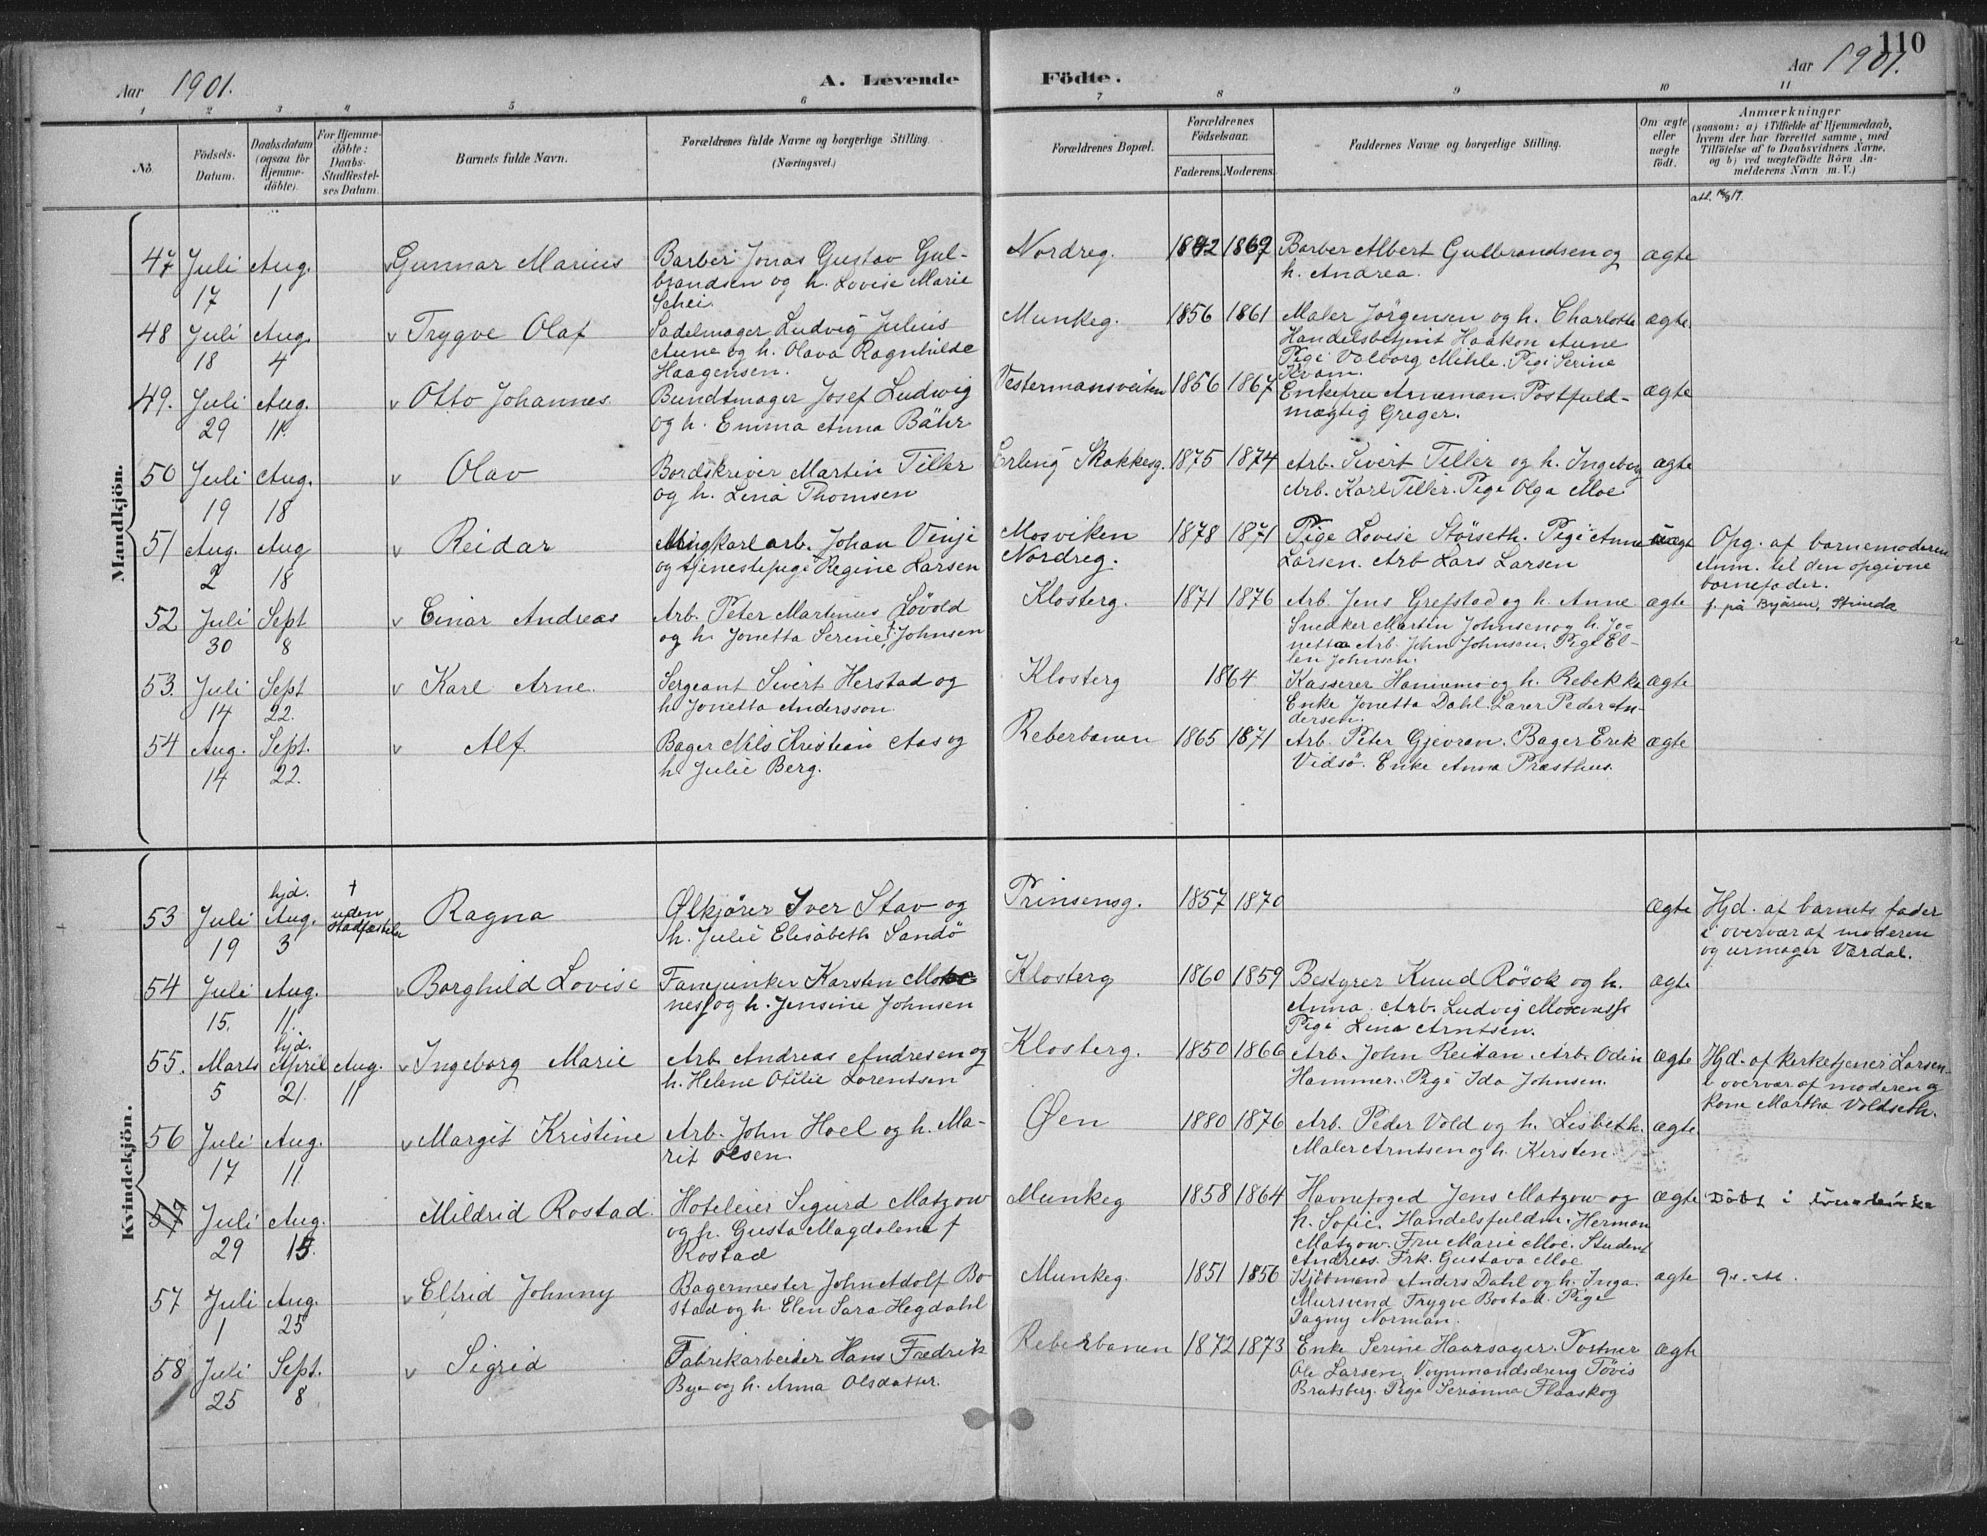 110
Aar 1901.
A. Levende Födte.
Aar 1901.
1 2 3 4 5 6 7 8 9 10 11
No.
Födsels-Datum.
Daabsdatum (ogsaa for Hjemme-döbte).
For Hjemme-döbte: Daabs-Stadfæstel-ses Datum.
Barnets fulde Navn.
Forældrenes fulde Navne og borgerlige Stilling. (Næringsvei.)
Forældrenes Bopæl.
Forældrenes Födselsaar.
Faderens. Moderens.
Faddernes Navne og borgerlige Stilling.
Om ægte eller uægte födt.
Anmærkninger
(saasom: a) i Tilfælde af Hjemmedaab, hvem der har forrettet samme, med Tilföielse af to Daabsvidners Navne, og b) ved uægtefödte Börn An-melderens Navn m. V.)
Mandkjön.
47 Juli 17 Aug. 1 v Gunnar Marius
Barber Jonas Gustav Gul-
brandsen og h. Lovise Marie
Schei.
Nordreg. 1869
Barber Albert Gulbrandsen og
h. Andrea.
ægte
48 Juli 18 Aug. 4 v Trygve Olaf
Sadelmager Ludvig Julius
Aune og h. Olava Ragnhilde
Haagensen.
Munkeg. 1856 1861
Maler Jörgensen og h. Charlotte
Handelsbetjent Haakon Aune
Pige Valborg Mihle. Pige Serine
Kvam.
ægte.
49. Juli 29 Aug. 11. v Otto Johannes
Bundtmager Josef Ludwig
og h. Emma Anna Bähr
Vestermansveiten 1856 1867
Enkefru Arneman. Postfuld-
mægtig Greger.
ægte
50 Juli 19 Aug. 18 v Olav
Bordskriver Martin Tiller
og h. Lena Thomsen
Erling Skakkesg. 1875 1874
Arb. Sivert Tiller og h. Ingeborg
Arb. Karl Tiller. Pige Olga Moe
ægte
51 Aug. 2 Aug 18 v Reidar
Ungkarl arb. Johan Vinje
og tjenestepige Regine Larsen
Mosviken
Nordreg. 1878 1871
Pige Lovise Störseth. Pige Anne
Larsen. Arb Lars Larsen
uægte
Opg. af barnemoderen
Anm. til den opgivne
barnefader.
52 Juli 30 Sept 8 v Einar Andreas
Arb. Peter Martinus Lövold
og h. Jonetta Serine Johnsen
Klosterg. 1871 1876
Arb. Jens Grefstad og h. Anne
Snekker Martin Johnsen og h. Jo-
netta Arb. John Johnsen. Pige El-
len Johnsen.
ægte
53. Juli 14 Sept 22. v Karl Arne.
Sergeant Sivert Herstad og
h. Jonetta Andersson.
Klosterg 1864
Kasserer Hannemo og h. Rebekka
Enke Jonetta Dahl. Lærer Peder An-
dersen.
ægte
54 Aug. 14 Sept. 22. v Alf
Bager Nils Kristian Aas og
h. Julie Berg.
Reberbanen 1865 1871
Arb. Peter Gjevran. Bager Erik
Vidsö. Enke Anna Præsthus.
ægte
Kvindekjön.
53 Juli 19 hjd. Aug. 3 † uden Stadfæstelse Ragna
Ølkjörer Iver Stav og
h. Julie Elisabeth Sandö
Prinsensg. 1857 1870
ægte
Hjd. af barnets fader
i overvær af moderen
og urmager Værdal.
54 Juli 15. Aug. 11. v Borghild Lovise
Fanejunker Karsten
og h. Jensine Johnsen
Klosterg 1860 1859
Bestyrer Knud Rösok og h.
Anna. Arb. Ludvig
Pige Lina Arntsen.
ægte
55. Marts 5 hjd. April 21. Aug. 11 v Ingeborg Marie
Arb. Andreas Andresen og
h. Helene Otilie Lorentsen
Klosterg. 1850 1866
Arb. John Reitan. Arb. Odin
Hammer. Pige Ida Johnsen.
ægte
Hjd. af kirketjener Larsen
i overvær af moderen og
kone Martha Voldseth.
56 Juli 17 Aug. 11 v Margit Kristine
Arb. John Hoel og h. Ma-
rit Olsen.
Øen 1880 1876
Arb. Peder Vold og h. Lisbeth.
Maler Arntsen og h. Kirsten
ægte.
57 Juli 29 Aug. 15. Mildrid Rostad.
Hoteleier Sigurd Matzow
og h. Gusta Magdalena f
Rostad
Munkeg 1858 1864
Havnefoged Jens Matzow og
h. Sofie. Handelsfuldm. Herman
Matzow. Fru Marie Moe. Student
Andreas. Frk. Gustava Moe
ægte
Döbt i
57 Juli 1 Aug. 25 v Elfrid Johnny
Bagermester John Adolf Bo-
stad og h. Elen Sara Hegdahl
Munkeg. 1851 1856
Kjöbmand Anders Dahl og h. Inga.
Mursvend Trygve Bostad. Pige
Dagny Norman.
ægte
58 Juli 25 Sept. 8 v Sigrid
Fabrikarbeider Hans Fredrik
Bye og h. Anna Olsdatter.
Reberbanen 1872 1873
Enke Serine Haarsager. Portner
Ole Larsen, Vognmandsdreng Tövis
Bratsberg. Pige Serianna Flaaskog
ægte